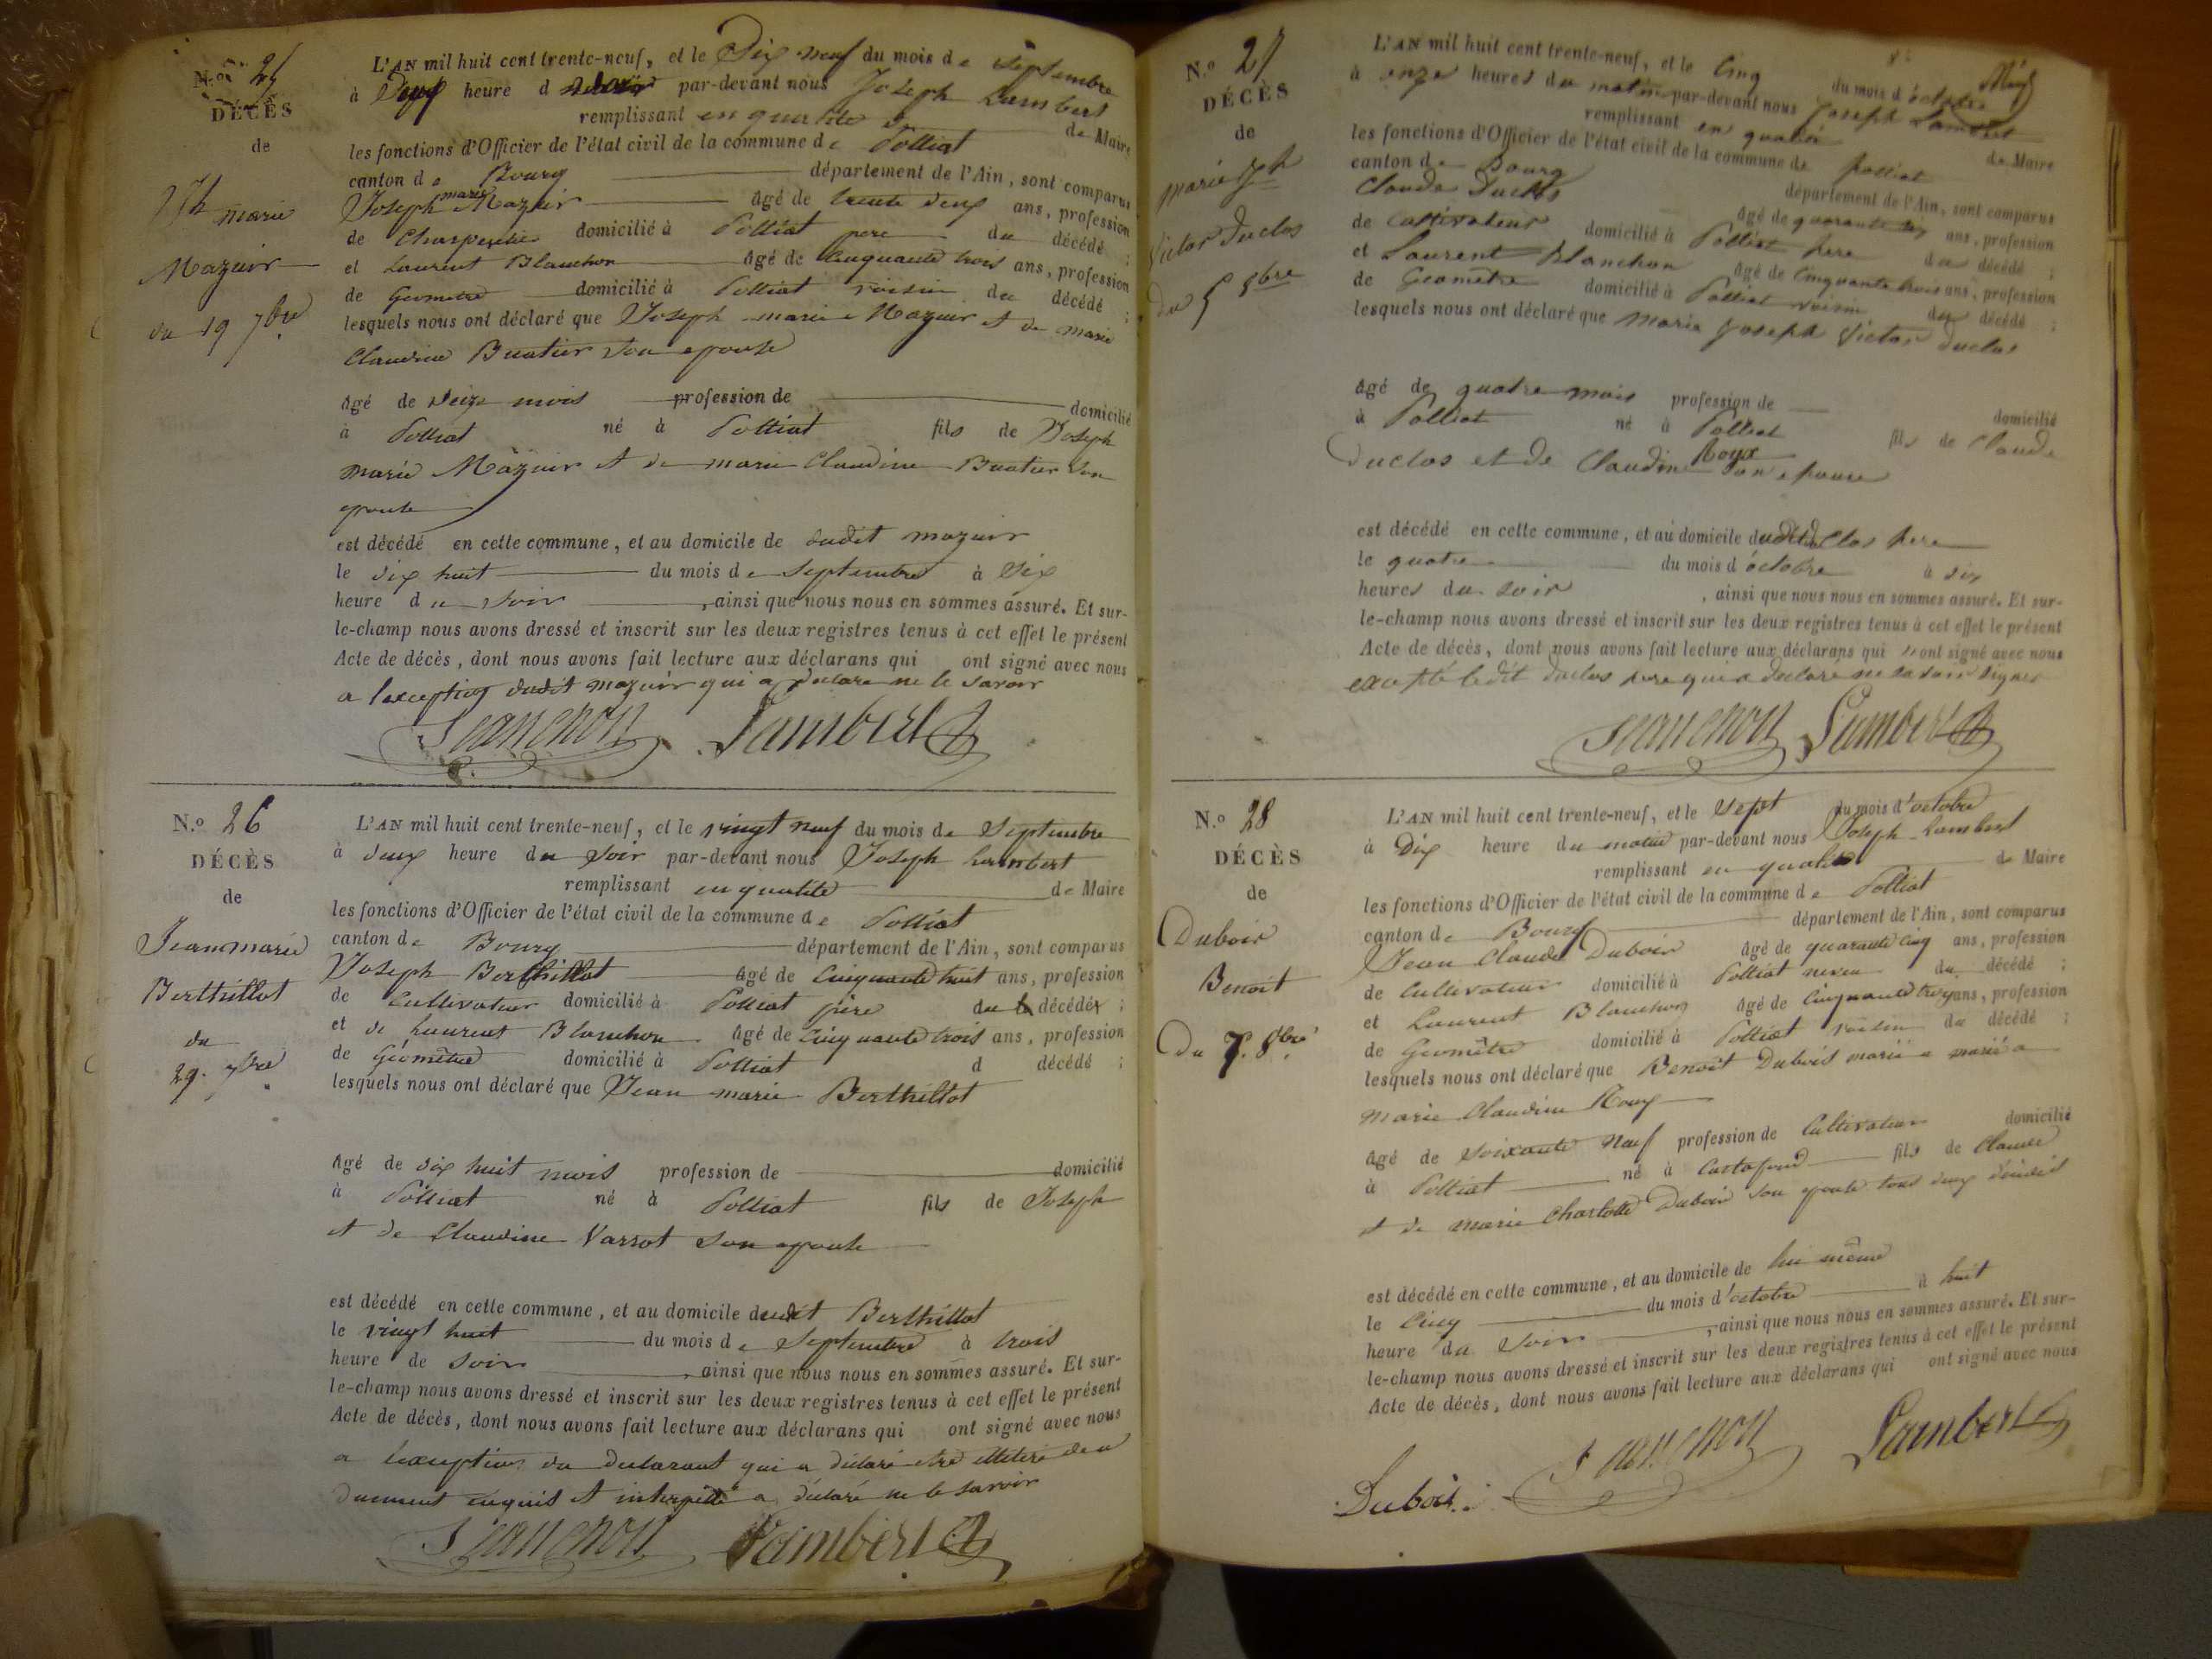 N.o 25
DÉCÈS
de
Jh marie
Mazuir
du 19 7bre
L'AN mil huit cent trente-neuf, et le Dix neuf du mois de Septembre
à Deux heure d par-devant nous Joseph Lambert
remplissant en qualité de Maire
les fonctions d'Officier de l'état civil de la commune de Polliat
canton de Bourg département de l'Ain, sont comparus
Joseph marie Mazuir âgé de trente deux ans, profession
de Charpentier domicilié à Polliat pere du décédé ;
et Laurent Blanchon âgé de Cinquante trois ans, profession
de Géomètre domicilié à Polliat voisin du décédé ;
lesquels nous ont déclaré que Joseph marie Mazuir et de marie
Claudine Buatier son epouse
âgé de mois profession de domicilié
à Polliat né à Polliat fils de Joseph
marie Mazuir et de marie Claudine Buatier son
epouse
est décédé en cette commune, et au domicile de dudit mazuir
le dix huit du mois de Septembre à Six
heure du Soir , ainsi que nous nous en sommes assuré. Et sur-
le-champ nous avons dressé et inscrit sur les deux registres tenus à cet effet le présent
Acte de décès, dont nous avons fait lecture aux déclarans qui ont signé avec nous
a lexception dudit mazuir qui a declare ne le savoir
Lambert
N.o 26
DÉCÈS
de
Jean marie
Berthillot
du
29. 7bre
L'AN mil huit cent trente-neuf, et le vingt neuf du mois de Septembre
à deux heure du Soir par-devant nous Joseph Lambert
remplissant en qualité de Maire
les fonctions d'Officier de l'état civil de la commune de Polliat
canton de Bourg département de l'Ain, sont comparus
Joseph Berthillot âgé de Cinquante huit ans, profession
de Cultivateur domicilié à Polliat père du décédé ;
et de Laurent Blanchon âgé de Cinquante trois ans, profession
de Géomètre domicilié à Polliat d décédé ;
lesquels nous ont déclaré que Jean marie Berthillot
âgé de dix huit mois profession de domicilié
à Polliat né à Polliat fils de Joseph
et de Claudine Varrot son epouse
est décédé en cette commune, et au domicile dudit Berthillot
le vingt huit du mois de Septembre à trois
heure de Soir , ainsi que nous nous en sommes assuré. Et sur-
le-champ nous avons dressé et inscrit sur les deux registres tenus à cet effet le présent
Acte de décès, dont nous avons fait lecture aux déclarans qui ont signé avec nous
a lexception du declarant qui a déclaré etre de ce
dument enquis et interpellé a déclaré ne le savoir
Lambert
N.o 27
DÉCÈS
de
marie Jph
Victor Duclos
du 5 8bre
L'AN mil huit cent trente-neuf, et le Cinq du mois d'octobre
à onze heures du matin par-devant nous Joseph Lambert
remplissant en qualité de Maire
les fonctions d'Officier de l'état civil de la commune de Polliat
canton de Bourg département de l'Ain, sont comparus
Claude Duclos âgé de quarante ans, profession
de Cultivateur domicilié à Polliat pere du décédé ;
et Laurent Blanchon âgé de Cinquante trois ans, profession
de Géomètre domicilié à Polliat voisin du décédé ;
lesquels nous ont déclaré que marie Joseph Victor Duclos
âgé de quatre mois profession de domicilié
à Polliat né à Polliat fils de Claude
Duclos et de Claudine Roux son epouse
est décédé en cette commune, et au domicile dudit duclos pere
le quatre du mois d'octobre à six
heures du soir , ainsi que nous nous en sommes assuré. Et sur-
le-champ nous avons dressé et inscrit sur les deux registres tenus à cet effet le présent
Acte de décès, dont nous avons fait lecture aux déclarans qui ont signé avec nous
excepté ledit duclos pere qui a declaré ne savoir signer
Lambert
N.o 28
DÉCÈS
de
Dubois
Benoit
Du 7. 8bre
L'AN mil huit cent trente-neuf, et le Sept du mois d'octobre
à Dix heure du matin par-devant nous Joseph Lambert
remplissant en qualité de Maire
les fonctions d'Officier de l'état civil de la commune de Polliat
canton de Bourg département de l'Ain, sont comparus
Jean Claude Dubois âgé de quarante cinq ans, profession
de Cultivateur domicilié à Polliat neveu du décédé ;
et Laurent Blanchon âgé de Cinquante trois ans, profession
de Géomètre domicilié à Polliat voisin du décédé ;
lesquels nous ont déclaré que Benoit Dubois marié a
marie Claudine Roux
âgé de soixante neuf profession de Cultivateur domicilié
à Polliat né à fils de Claude
et de marie Charlotte Dubois son epouse tous deux décédés
est décédé en cette commune, et au domicile de lui même
le Cinq du mois d'octobre à huit
heure du Soir , ainsi que nous nous en sommes assuré. Et sur-
le-champ nous avons dressé et inscrit sur les deux registres tenus à cet effet le présent
Acte de décès, dont nous avons fait lecture aux déclarans qui ont signé avec nous
Dubois Lambert